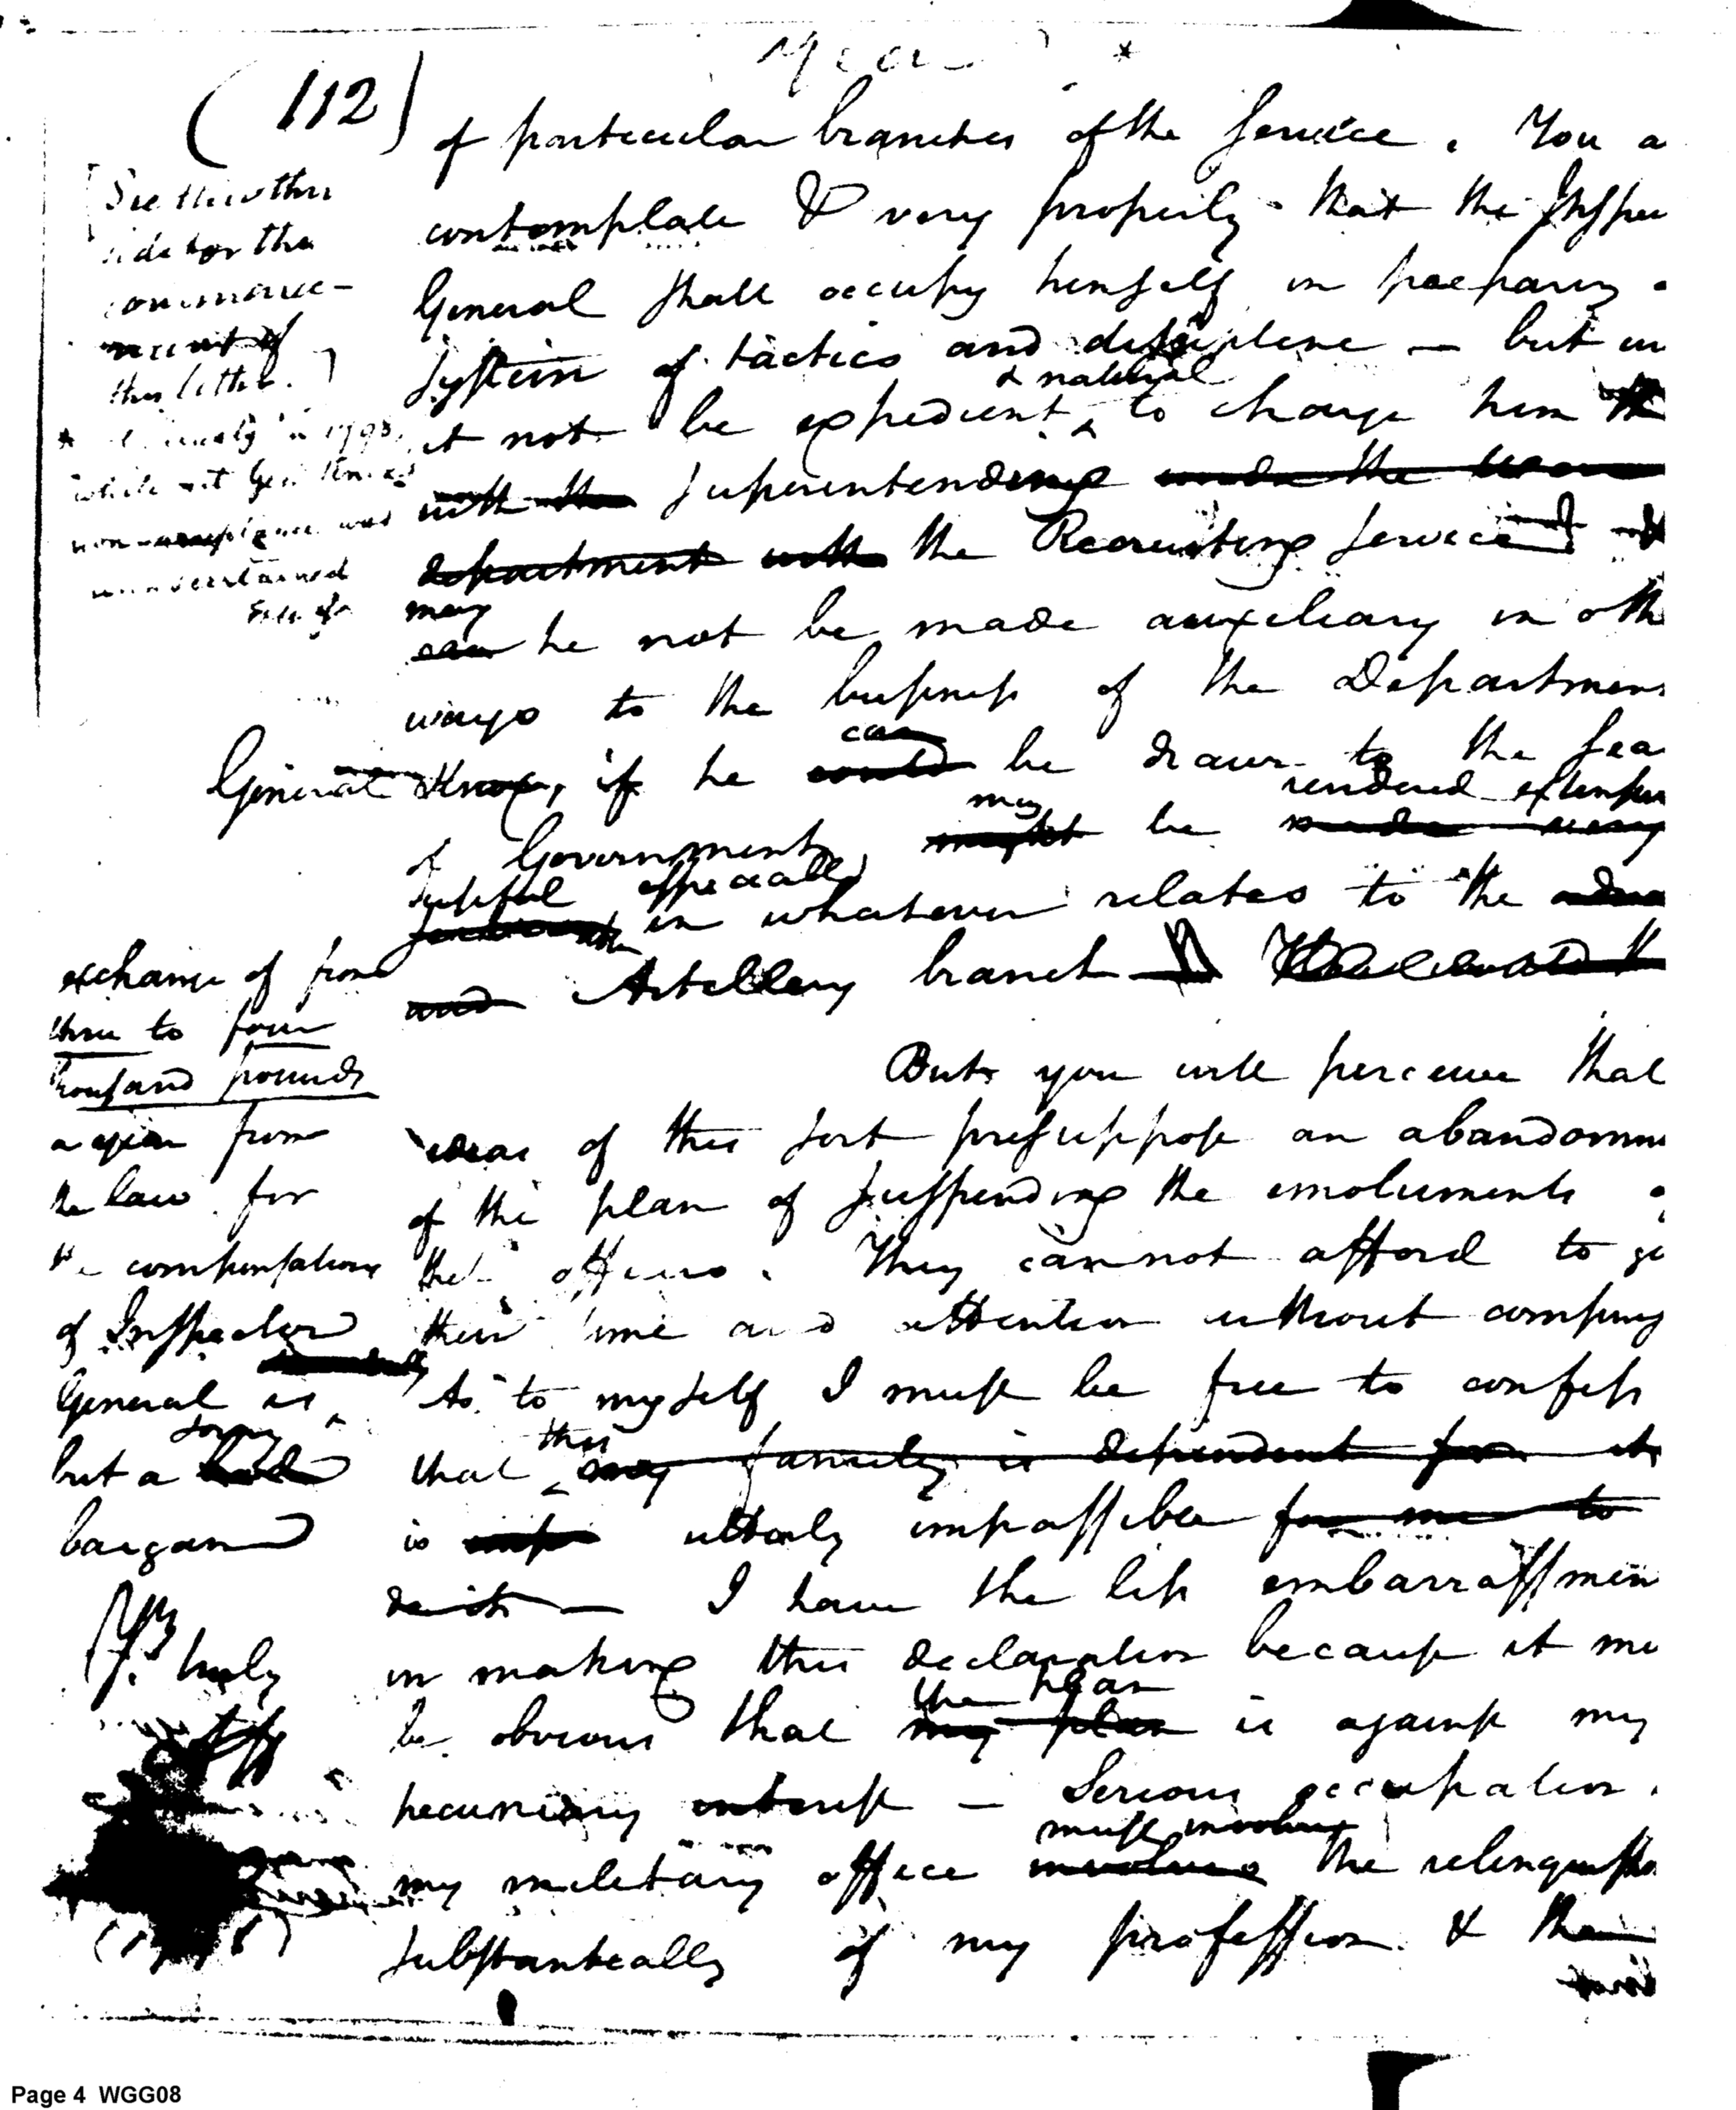 (112)
of particular branches of the Service. You a
contemplate & very properly that the Inspec
General shall occupy himself in preparing a
System of tactics and discipline — but w
& natural
it not be expedient to charge him
with the Superintending under the
department with the Recruiting service
may
can he not be made auxiliary in oth
ways to the business of the Department
can
General Knox, if he could be drawn to the sea
may rendered extens
of Government, might be made very
useful especially
in whatever relates to the
and Artillery branch
But you will perceive that
ideas of this sort presuppose an abandonm
of the plan of suspending the emoluments o
the officers. They cannot afford to gi
their time and attention without compens
As to myself I must be free to confess
this
that my family is dependent for it
is utterly impossible for me to
do it — I have the less embarrassmen
in making this declaration because it mu
the plan
be obvious that my plan is against my
pecuniary interest — Serious occupation
must involve
my military office involves the relinquish
substantially of my profession & the
[See the other
side for the
commence-
ment of
this letter.]
* in 1798,
while yet Gen Knox's
non-acceptance was
unascertained
exchange of from
three to four
thousand pounds
a year from
the law for
the compensations
of Inspector
General is
sorry
but a bad
bargain
Yrs truly
Page 4 WGG08